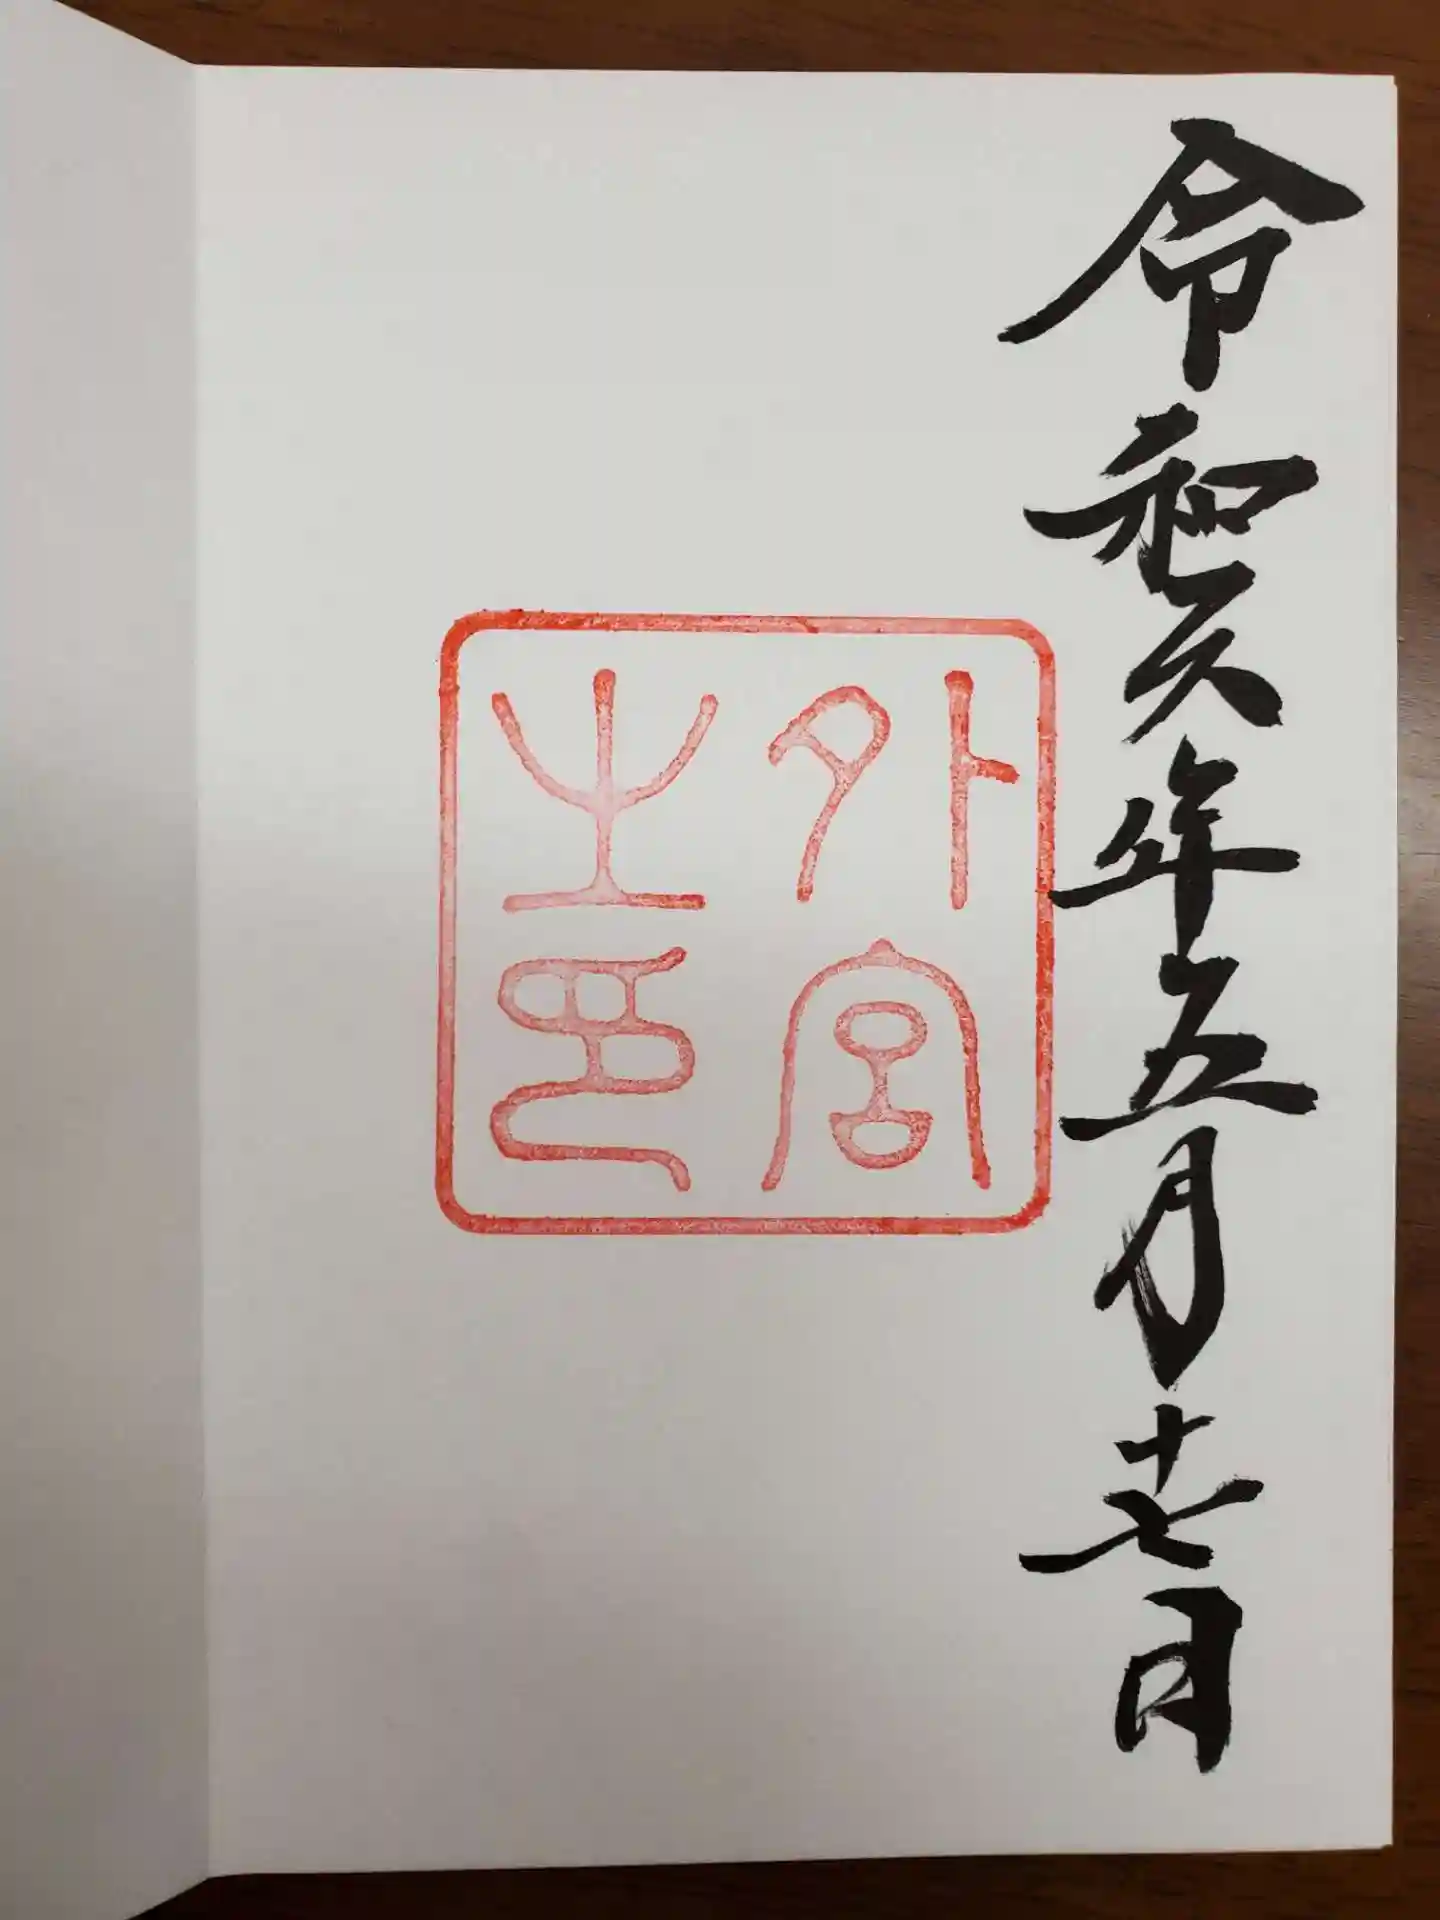 令和六年五月十七日
外宮
之印